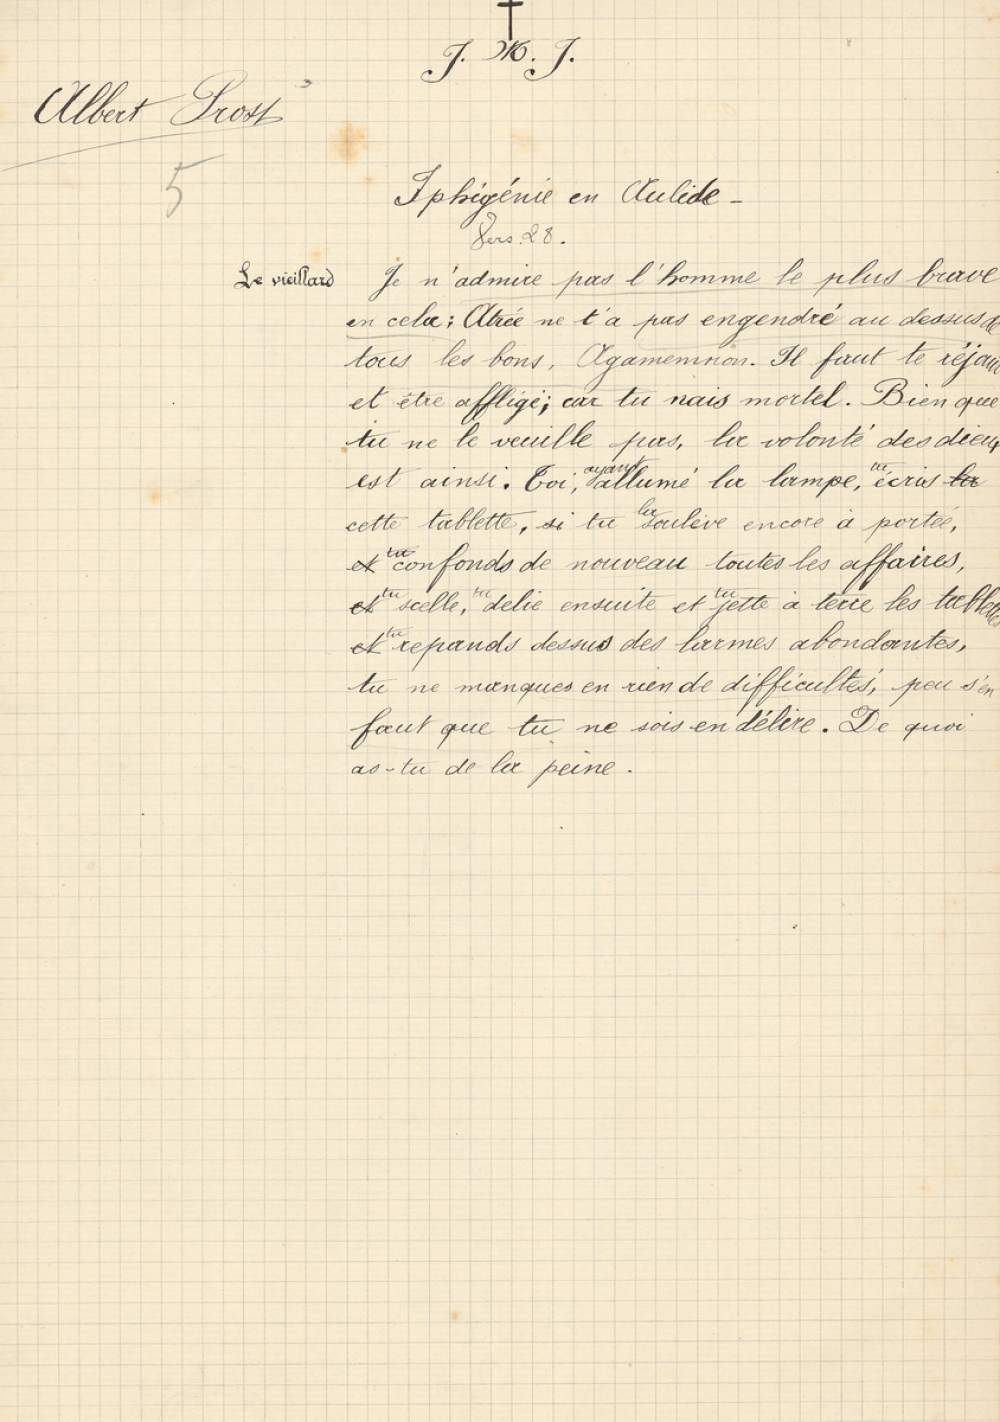 J. M. J.
Albert Prost
5
Iphigénie en Aulide -
Vers. 28.
Le vieillard Je n'admire pas l'homme le plus brave
en cela; Atrée ne t'a pas engendré au dessus de
tous les bons, Agamemnon. Il faut te réjouir
et être affligé; car tu nais mortel. Bien que
tu ne le veuille pas, la volonté des dieux
est ainsi. Toi, ayant allumé la lampe, tu écris la
cette tablette, si tu la soulève encore à portée,
et tu confonds de nouveau toutes les affaires,
et tu scelle, tu délie ensuite et tu jette à terre les tablettes
et tu repands dessus des larmes abondantes,
tu ne manques en rien de difficultés, peu s'en
faut que tu ne sois en délire. De quoi
as-tu de la peine.